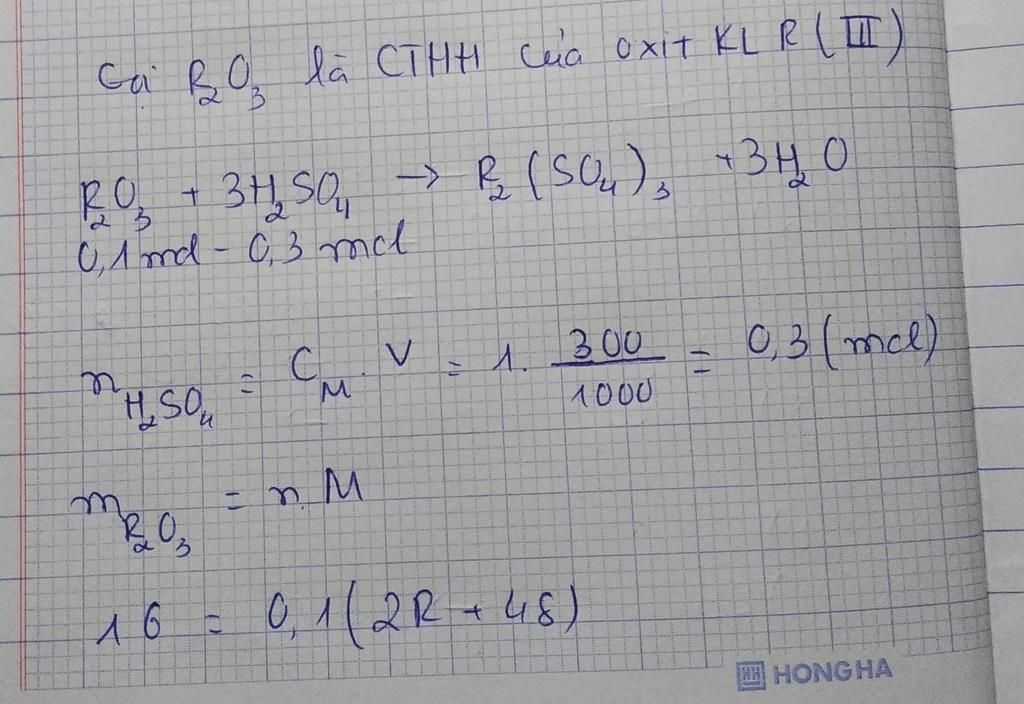 Gọi R₂O₃ là CTHH của oxit KL R (III)
R₂O₃ + 3H₂SO₄ → R₂(SO₄)₃ + 3H₂O
0,1 mol - 0,3 mol
n H₂SO₄ = C_M . V = 1. 300/1000 = 0,3 (mol)
m R₂O₃ = n. M
16 = 0,1(2R + 48)
HONG HA